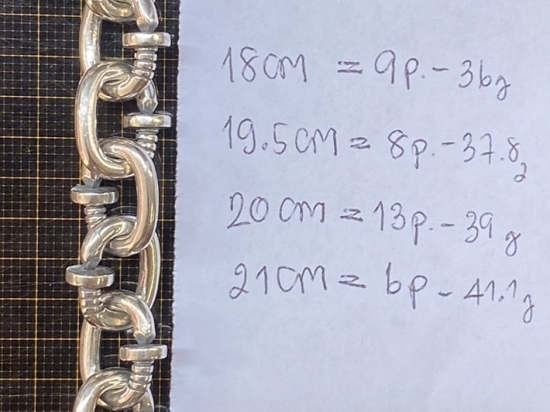 18cm = 9p. - 36g
19.5cm = 8p. - 37.8g
20cm = 13p. - 39g
21cm = 6p - 41.1g